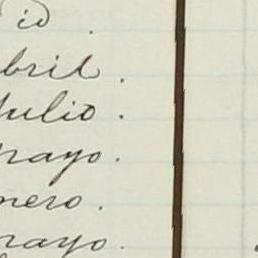 id .
bril .
Julio .
mayo .
nero .
mayo .